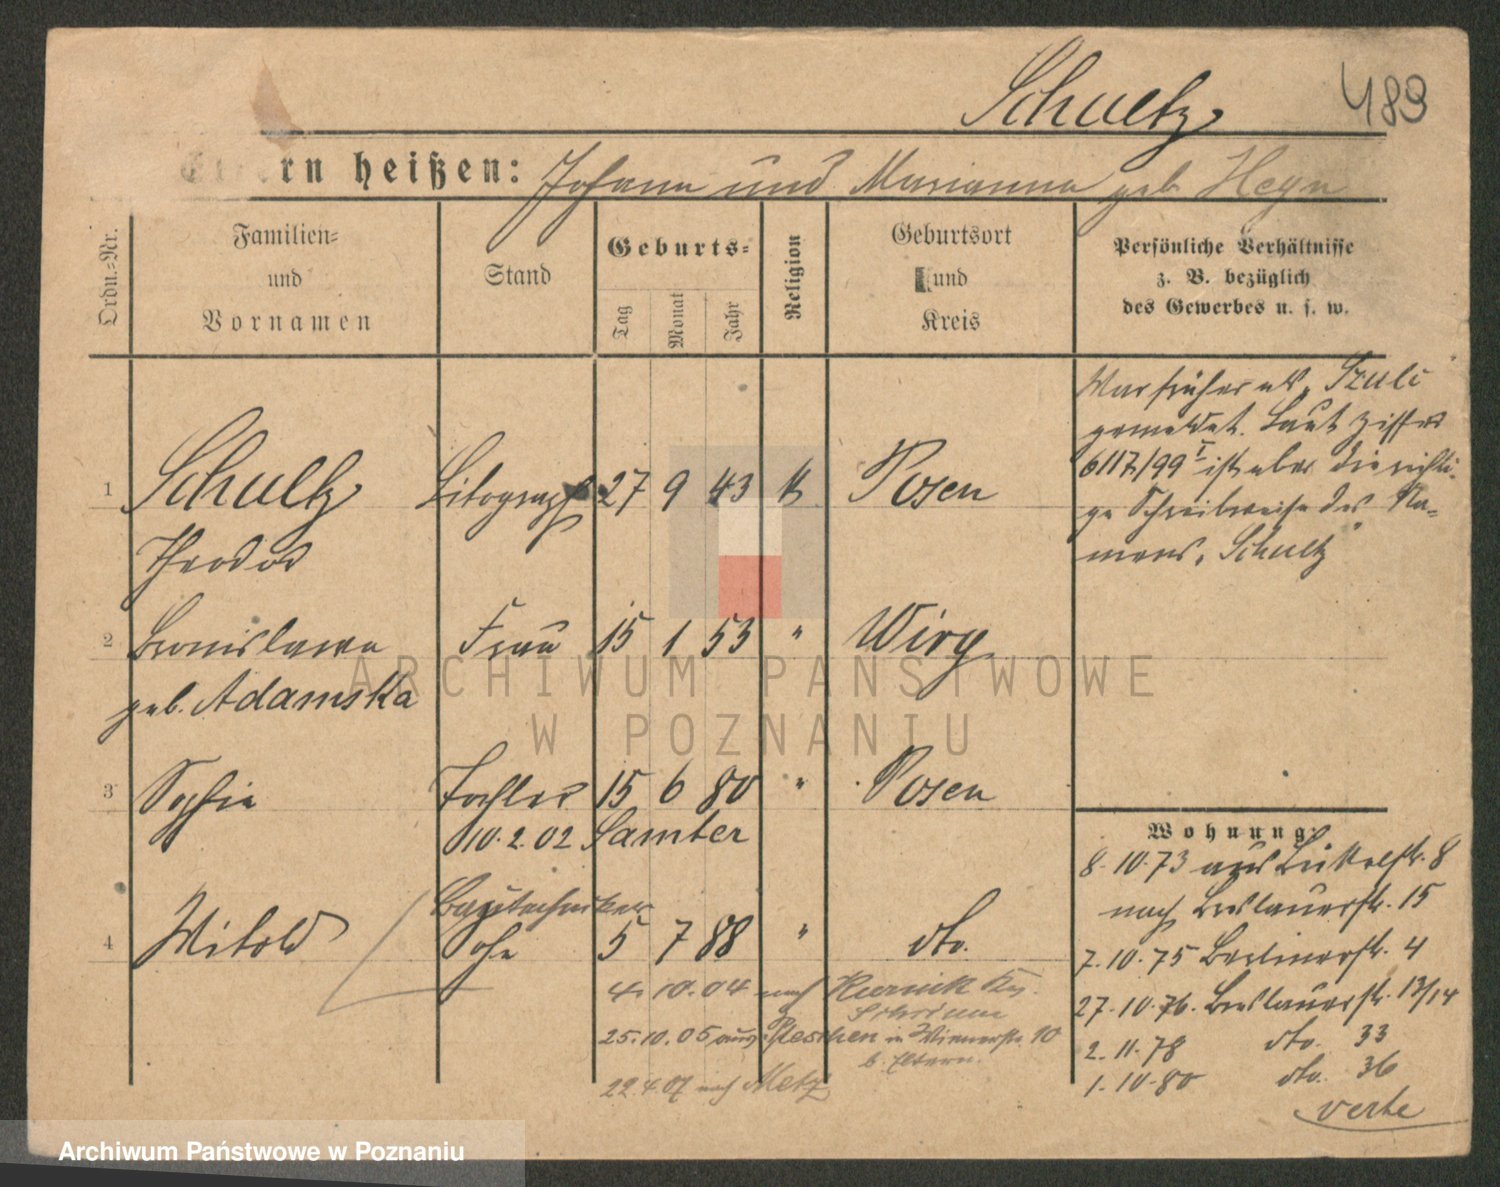 Schultz
483
Eltern heißen: Johann und Marianna geb. Heyn
Ordn.-Nr.
Familien-
und
Vornamen
Stand
Geburts-
Tag
Monat
Jahr
Religion
Geburtsort
und
Kreis
Persönliche Verhältnisse
z. B. bezüglich
des Gewerbes u. s. w.
War früher als „Szulc"
gemeldet. Laut Ziffer
6117/99 I ist aber die richti-
ge Schreibweise des Na-
mens „Schultz"
1 Schultz Litograph 27 9 43 k Posen
Theodor
2 Bronislawa Frau 15 1 53 " Wiry
geb. Adamska
3 Sophie Tochter 15 6 80 " Posen
10.2.02 Samter
Bautechniker
4 Witold Sohn 5 7 88 " dto.
4. 10. 04 nach Kurnik Krs.
Schrimm
25. 10. 05 aus Pleschen in Wienerstr. 10
b. Eltern.
22.4.07 nach Metz
Wohnung:
8. 10. 73 aus 8
nach Breslauerstr. 15
7. 10. 75 Berlinerstr. 4
27. 10. 76. Breslauerstr. 13/14
2. 11. 78 dto. 33
1. 10. 80 dto. 36
verte
ARCHIWUM PAŃSTWOWE
W POZNANIU
Archiwum Państwowe w Poznaniu